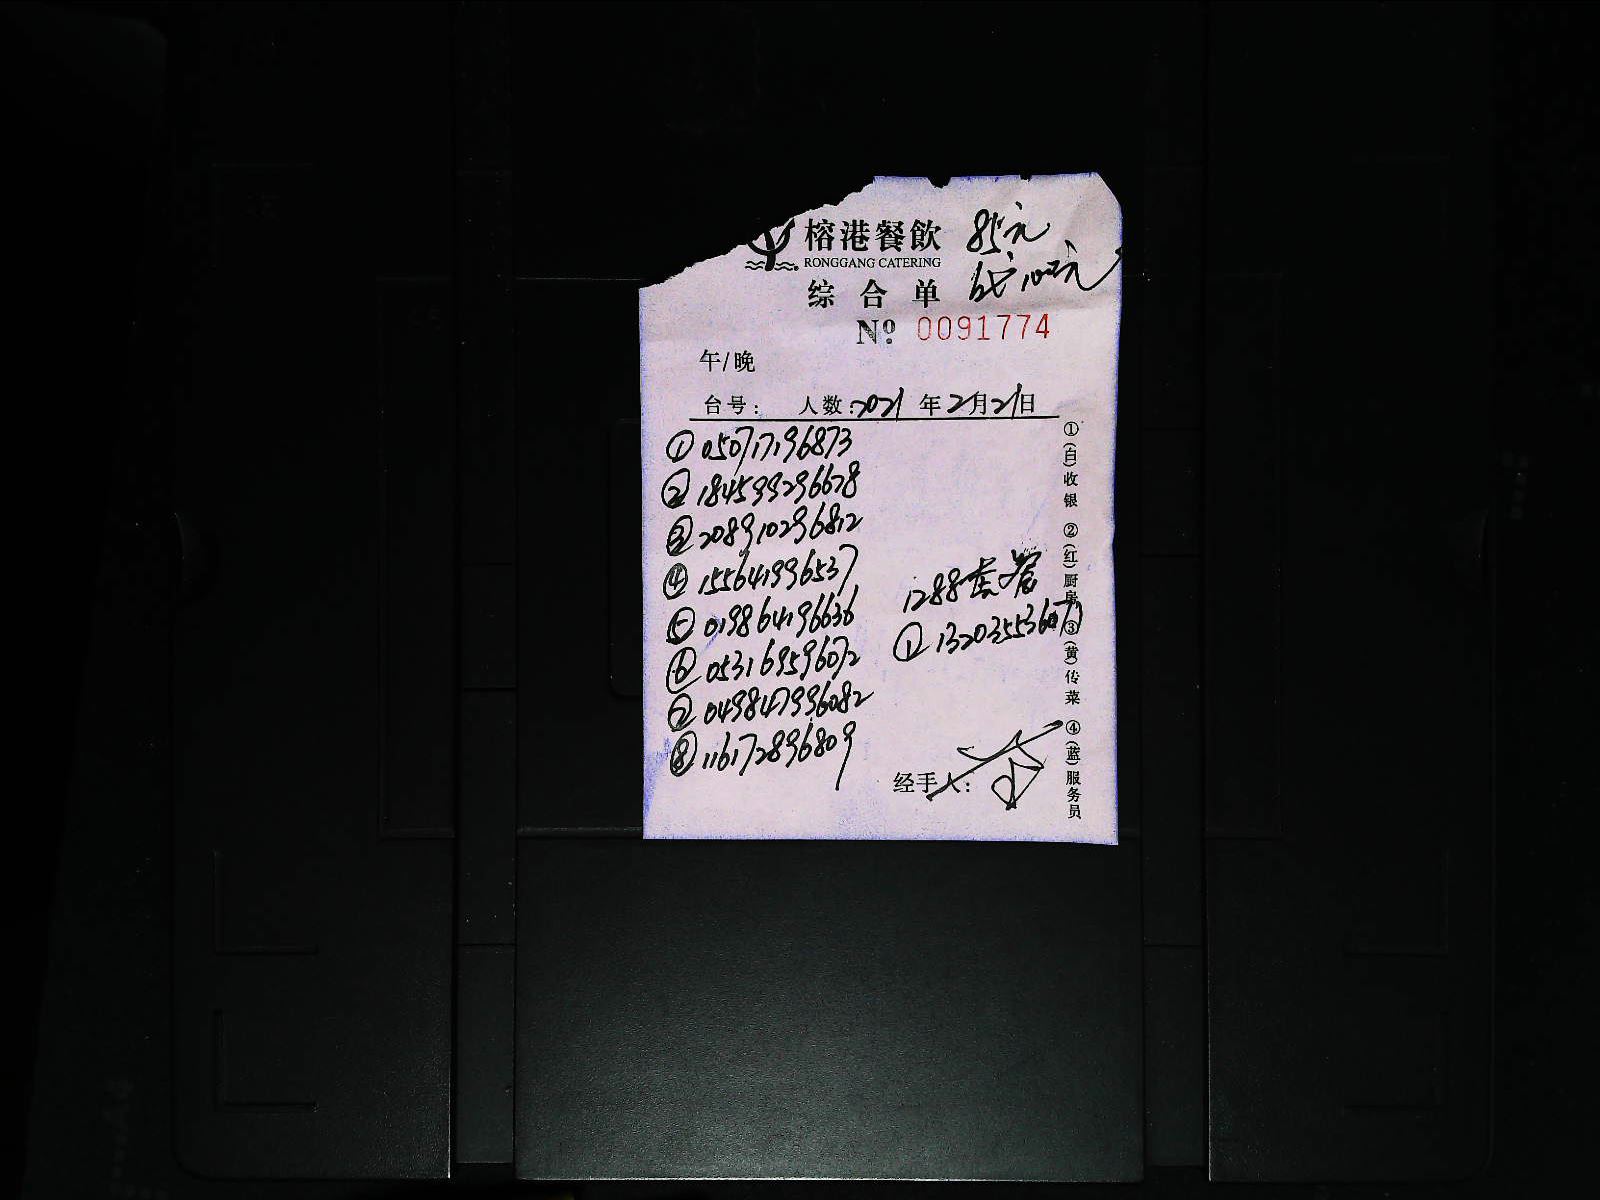 榕港餐飲
RONGGANG CATERING
85元
综合单
No 0091774
午/晚
台号: 人数:2021年2月21日
①050717196873
②184599296678
③208910296812
④155641996537
⑤019864196636
⑥053169596072
⑦049847996082
⑧116172896809
1288套餐
①132035536071
经手人:
①(白)收银 ②(红)厨房 ③(黄)传菜 ④(蓝)服务员